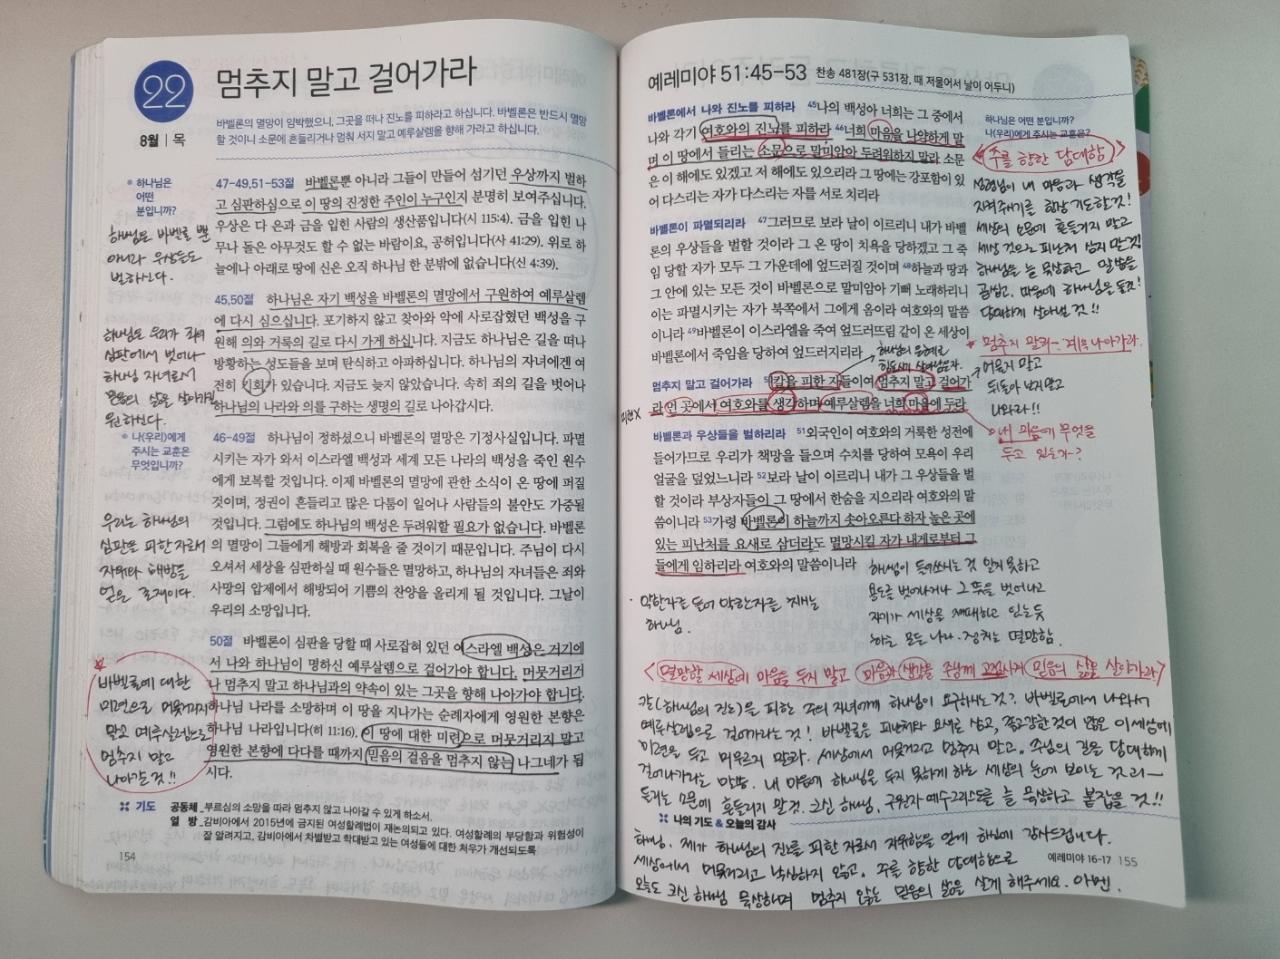 22
8월 | 목
멈추지 말고 걸어가라
바벨론의 멸망이 임박했으니, 그곳을 떠나 진노를 피하라고 하십니다. 바벨론은 반드시 멸망
할 것이니 소문에 흔들리거나 멈춰 서지 말고 예루살렘을 향해 가라고 하십니다.
하나님은
어떤
분입니까?
하나님은 바벨론 뿐
아니라 우상들도
벌하신다.
47-49,51-53절 바벨론뿐 아니라 그들이 만들어 섬기던 우상까지 벌하
고 심판하심으로 이 땅의 진정한 주인이 누구인지 분명히 보여주십니다.
우상은 다 은과 금을 입힌 사람의 생산품입니다(시 115:4). 금을 입힌 나
무나 돌은 아무것도 할 수 없는 바람이요, 공허입니다(사 41:29). 위로 하
늘에나 아래로 땅에 신은 오직 하나님 한 분밖에 없습니다(신 4:39).
하나님은 우리가 죄의
심판에서 벗어나
하나님 자녀로서
믿음의 삶을 살아가길
원하신다.
45,50절 하나님은 자기 백성을 바벨론의 멸망에서 구원하여 예루살렘
에 다시 심으십니다. 포기하지 않고 찾아와 악에 사로잡혔던 백성을 구
원해 의와 거룩의 길로 다시 가게 하십니다. 지금도 하나님은 길을 떠나
방황하는 성도들을 보며 탄식하고 아파하십니다. 하나님의 자녀에겐 여
전히 기회가 있습니다. 지금도 늦지 않았습니다. 속히 죄의 길을 벗어나
하나님의 나라와 의를 구하는 생명의 길로 나아갑시다.
나(우리)에게
주시는 교훈은
무엇입니까?
우리는 하나님의
심판을 피한 자로서
자유와 해방을
얻은 존재이다.
46-49절 하나님이 정하셨으니 바벨론의 멸망은 기정사실입니다. 파멸
시키는 자가 와서 이스라엘 백성과 세계 모든 나라의 백성을 죽인 원수
에게 보복할 것입니다. 이제 바벨론의 멸망에 관한 소식이 온 땅에 퍼질
것이며, 정권이 흔들리고 많은 다툼이 일어나 사람들의 불안도 가중될
것입니다. 그럼에도 하나님의 백성은 두려워할 필요가 없습니다. 바벨론
의 멸망이 그들에게 해방과 회복을 줄 것이기 때문입니다. 주님이 다시
오셔서 세상을 심판하실 때 원수들은 멸망하고, 하나님의 자녀들은 죄와
사망의 압제에서 해방되어 기쁨의 찬양을 올리게 될 것입니다. 그날이
우리의 소망입니다.
바벨론에 대한
미련으로 머뭇거리지
말고 예루살렘으로
멈추지 말고
나아가는 것!!
50절 바벨론이 심판을 당할 때 사로잡혀 있던 이스라엘 백성은 거기에
서 나와 하나님이 명하신 예루살렘으로 걸어가야 합니다. 머뭇거리지
나 멈추지 말고 하나님과의 약속이 있는 그곳을 향해 나아가야 합니다.
하나님 나라를 소망하며 이 땅을 지나가는 순례자에게 영원한 본향은
하나님 나라입니다(히 11:16). 이 땅에 대한 미련으로 머뭇거리지 말고
영원한 본향에 다다를 때까지 믿음의 걸음을 멈추지 않는 나그네가 됩
시다.
기도 공동체_부르심의 소망을 따라 멈추지 않고 나아갈 수 있게 하소서.
열 방_감비아에서 2015년에 금지된 여성할례법이 재논의되고 있다. 여성할례의 부당함과 위험성이
잘 알려지고, 감비아에서 차별받고 학대받고 있는 여성들에 대한 처우가 개선되도록
154
예레미야 51:45-53 찬송 481장(구 531장, 때 저물어서 날이 어두니)
바벨론에서 나와 진노를 피하라 45나의 백성아 너희는 그 중에서
나와 각기 여호와의 진노를 피하라 46너희 마음을 나약하게 말
며 이 땅에서 들리는 소문으로 말미암아 두려워하지 말라 소문
은 이 해에도 있겠고 저 해에도 있으리라 그 땅에는 강포함이 있
어 다스리는 자가 다스리는 자를 서로 치리라
바벨론이 파멸되리라 47그러므로 보라 날이 이르리니 내가 바벨
론의 우상들을 벌할 것이라 그 온 땅이 치욕을 당하겠고 그 죽
임 당할 자가 모두 그 가운데에 엎드러질 것이며 48하늘과 땅과
그 안에 있는 모든 것이 바벨론으로 말미암아 기뻐 노래하리니
이는 파멸시키는 자가 북쪽에서 그에게 옴이라 여호와의 말씀
이니라 49바벨론이 이스라엘을 죽여 엎드러뜨림 같이 온 세상이
바벨론에서 죽임을 당하여 엎드러지리라
하나님의 은혜로
멈추지 말고 걸어가라 50칼을 피한 자들이여 멈추지 말고 걸어가
라 먼 곳에서 여호와를 생각하며 예루살렘을 너희 마음에 두라
바벨론과 우상들을 벌하리라 51외국인이 여호와의 거룩한 성전에
들어가므로 우리가 책망을 들으며 수치를 당하여 모욕이 우리
얼굴을 덮었느니라 52보라 날이 이르리니 내가 그 우상들을 벌
할 것이라 부상자들이 그 땅에서 한숨을 지으리라 여호와의 말
씀이니라 53가령 바벨론이 하늘까지 솟아오른다 하자 높은 곳에
있는 피난처를 요새로 삼더라도 멸망시킬 자가 내게로부터 그
들에게 임하리라 여호와의 말씀이니라
하나님은 어떤 분입니까?
나(우리)에게 주시는 교훈은?
《주를 향한 담대함》
성령님이 내 마음과 생각을
지켜주시기를 항상 기도할 것!
세상의 소문에 흔들리지 말고
세상 것으로 피난처 삼지 말 것
하나님을 늘 묵상하고 말씀을
곱씹고, 마음에 하나님을 둘 것!
담대하게 살아낼 것!!
* 멈추지 말라 - 계속 나아가라.
머뭇지 말고
뒤돌아보지 말고
나와라!!
내 마음에 무엇을
두고 있는가?
· 악한 자로 들어 악한 자를 치시는
하나님.
하나님이 들어쓰시는 것 알지 못하고
용도를 벗어나거나 그 뜻을 벗어나고
자기가 세상을 제패하고 있는듯
하는 모든 나라·정치는 멸망함.
<멸망할 세상에 마음을 두지 말고 마음과 생각을 주님께 고정시켜 믿음의 삶을 살아가라>
칼(하나님의 진노)을 피한 주의 자녀에게 하나님이 요구하시는 것? 바벨론에서 나와서
예루살렘으로 걸어가라는 것! 바벨론은 피난처와 요새로 삼고, 풍족한 것이 많은 이 세상에
미련을 두고 머무르지 말라. 세상에서 머뭇거리고 멈추지 말고, 주님의 길을 담대하게
걸어나가라는 말씀. 내 마음에 하나님을 두지 못하게 하는 세상의 눈에 보이는 것과
들리는 소문에 흔들리지 말 것. 크신 하나님, 구원자 예수그리스도를 늘 묵상하고 붙잡을 것!!
나의 기도 & 오늘의 감사
하나님, 제가 하나님의 진노를 피한 자로서 자유함을 얻게 하심에 감사드립니다.
세상에서 머뭇거리고 낙심하지 않고, 주를 향한 담대함으로
오늘도 크신 하나님 묵상하며 멈추지 않는 믿음의 삶을 살게 해주세요. 아멘.
예레미야 16-17 155